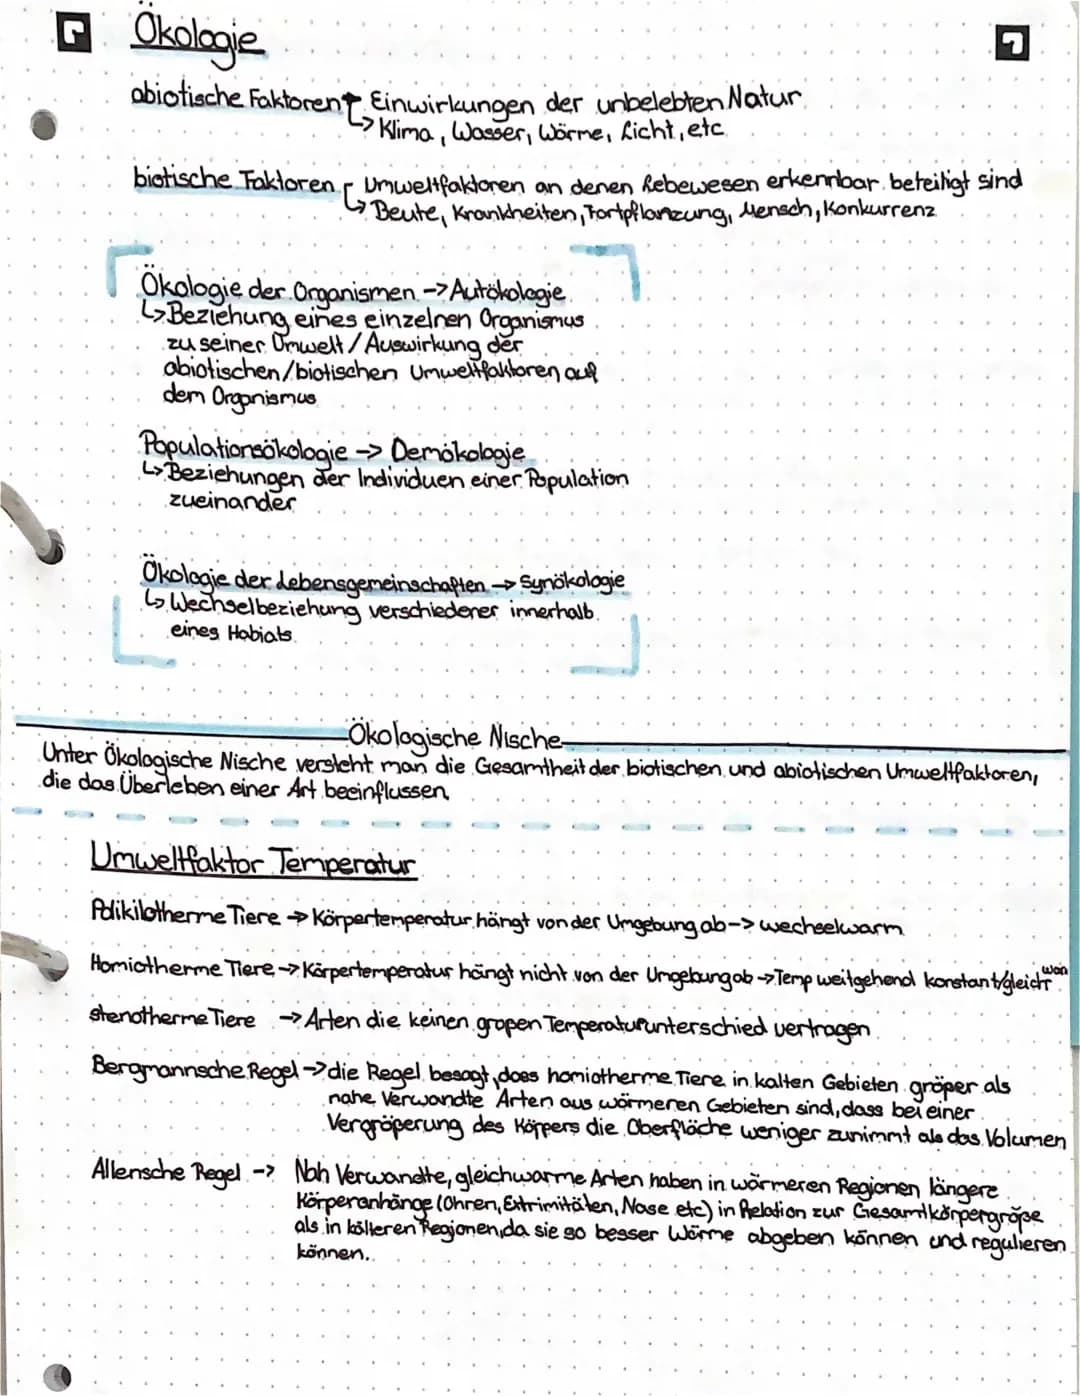 Ökologie
abiotische Faktoren → Einwirkungen der unbelebten Natur
↳ Klima, Wasser, Wärme, Licht, etc.
biotische Faktoren Umweltfaktoren an denen Lebewesen erkennbar beteiligt sind
↳ Beute, Krankheiten, Fortpflanzung, Mensch, Konkurrenz
Ökologie der Organismen -> Autökologie
↳ Beziehung eines einzelnen Organismus
zu seiner Umwelt / Auswirkung der
abiotischen/biotischen Umweltfaktoren auf
dem Organismus
Populationsökologie -> Demökologie
↳ Beziehungen der Individuen einer Population
zueinander
Ökologie der Lebensgemeinschaften -> Synökologie
↳ Wechselbeziehung verschiedener innerhalb
eines Habiats
Ökologische Nische
Unter Ökologische Nische versteht man die Gesamtheit der biotischen und abiotischen Umweltfaktoren,
die das Überleben einer Art beeinflussen
Umweltfaktor Temperatur
Poikilotherme Tiere -> Körpertemperatur hängt von der Umgebung ab -> wechselwarm
Homiotherme Tiere -> Körpertemperatur hängt nicht von der Umgebung ab -> Temp weitgehend konstant/gleich
stenotherme Tiere -> Arten die keinen großen Temperaturunterschied vertragen
Bergmannsche Regel -> die Regel besagt, dass homiotherme Tiere in kalten Gebieten größer als
nahe Verwandte Arten aus wärmeren Gebieten sind, dass bei einer
Vergrößerung des Körpers die Oberfläche weniger zunimmt als das Volumen
Allensche Regel -> Nah Verwandte, gleichwarme Arten haben in wärmeren Regionen längere
Körperanhänge (Ohren, Extrimitäten, Nase etc) in Relation zur Gesamtkörpergröße
als in kälteren Regionen, da sie so besser Wärme abgeben können und regulieren
können.